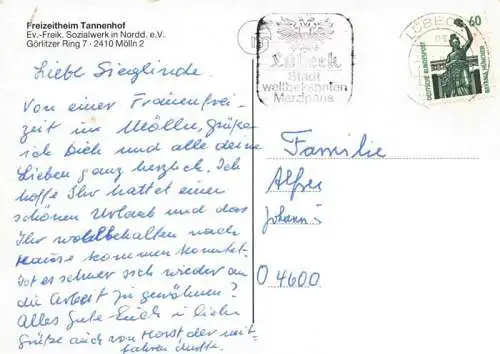 Freizeitheim Tannenhof
Ev.-Freik. Sozialwerk in Nordd. e.V.
Görlitzer Ring 7 · 2410 Mölln 2
Liebe Sieglinde.
Von einer Frauenfrei-
zeit im Mölln, Grüße
ich Dich und alle deine
Lieben ganz herzlich. Ich
hoffe Ihr hattet einen
schönen Urlaub und das
Ihr wohlbehalten nach
Hause kommen konntet.
Ist es schwer sich wieder an
die Arbeit zu gewöhnen?
Alles Gute Euch u. liebe
Grüße auch von Horst der mit-
fahren durfte.
Lübeck
Stadt
weltbekannten
Marzipans
LÜBECK
60
DEUTSCHE BUNDESPOST
BAVARIA MÜNCHEN
Familie
Alfred
Johann
O 4600